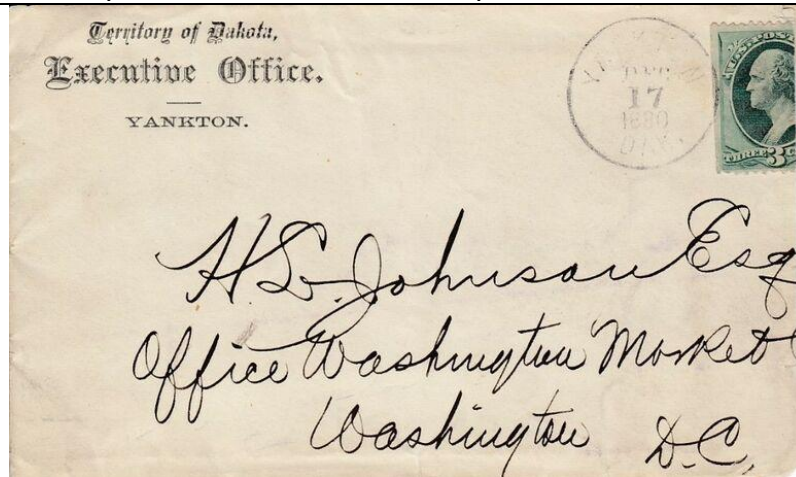 Territory of Dakota,
Executive Office.
YANKTON.
17
1880
DAK.
U.S. POST
THREE 3 C
H. S. Johnson Esq
Office Washington Market
Washington D.C.